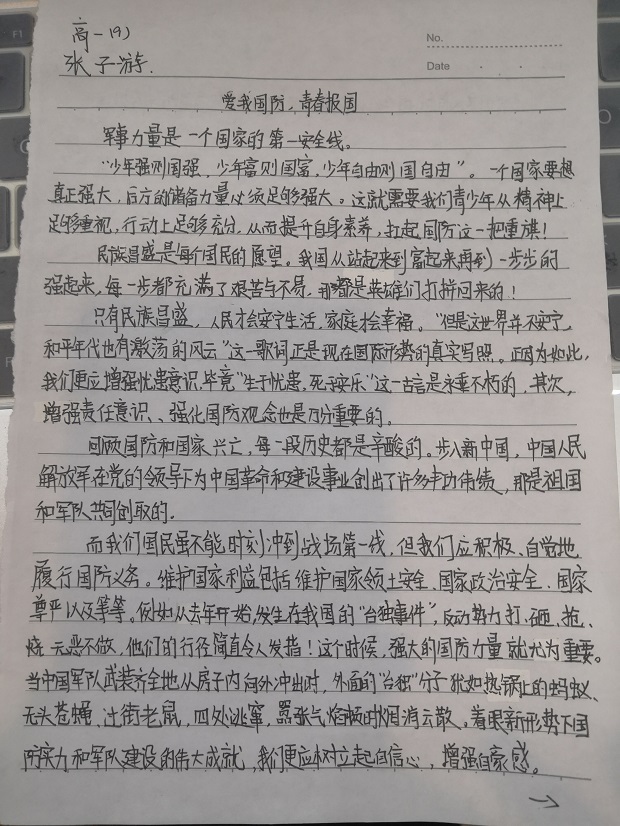 高一(9)
No.
张子游.
Date
爱我国防，青春报国
军事力量是一个国家的第一安全线。
“少年强则国强，少年富则国富，少年自由则国自由”。一个国家要想
真正强大，后方的储备力量必须足够强大。这就需要我们青少年从精神上
足够重视，行动上足够充分，从而提升自身素养，扛起国防这一把重旗！
民族昌盛是每个国民的愿望。我国从站起来到富起来再到一步步的
强起来，每一步都充满了艰苦与不易，那都是英雄们打拼回来的！
只有民族昌盛，人民才会安宁生活，家庭才会幸福。“但是这世界并不安宁，
和平年代也有激荡的风云”这一歌词正是现在国际形势的真实写照。正因为如此，
我们更应增强忧患意识，毕竟“生于忧患，死于安乐”这一古言是永垂不朽的，其次，
增强责任意识、强化国防观念也是万分重要的。
回顾国防和国家兴亡，每一段历史都是辛酸的。步入新中国，中国人民
解放军在党的领导下为中国革命和建设事业创出了许多丰功伟绩，那是祖国
和军队共同创取的.
而我们国民虽不能时刻冲到战场第一线，但我们应积极、自觉地
履行国防义务。维护国家利益包括维护国家领土安全、国家政治安全、国家
尊严以及等等。例如从去年开始，发生在我国的“台独事件”，反动势力打、砸、抢、
烧无恶不做，他们的行径简直令人发指！这个时候，强大的国防力量就尤为重要。
当中国军队武装齐全地从房子内向外冲出时，外面的“台独”分子犹如热锅上的蚂蚁、
无头苍蝇、过街老鼠，四处逃窜，嚣张气焰顿时烟消云散。着眼新形势下国
防实力和军队建设的伟大成就，我们更应树立起自信心，增强自豪感。
→